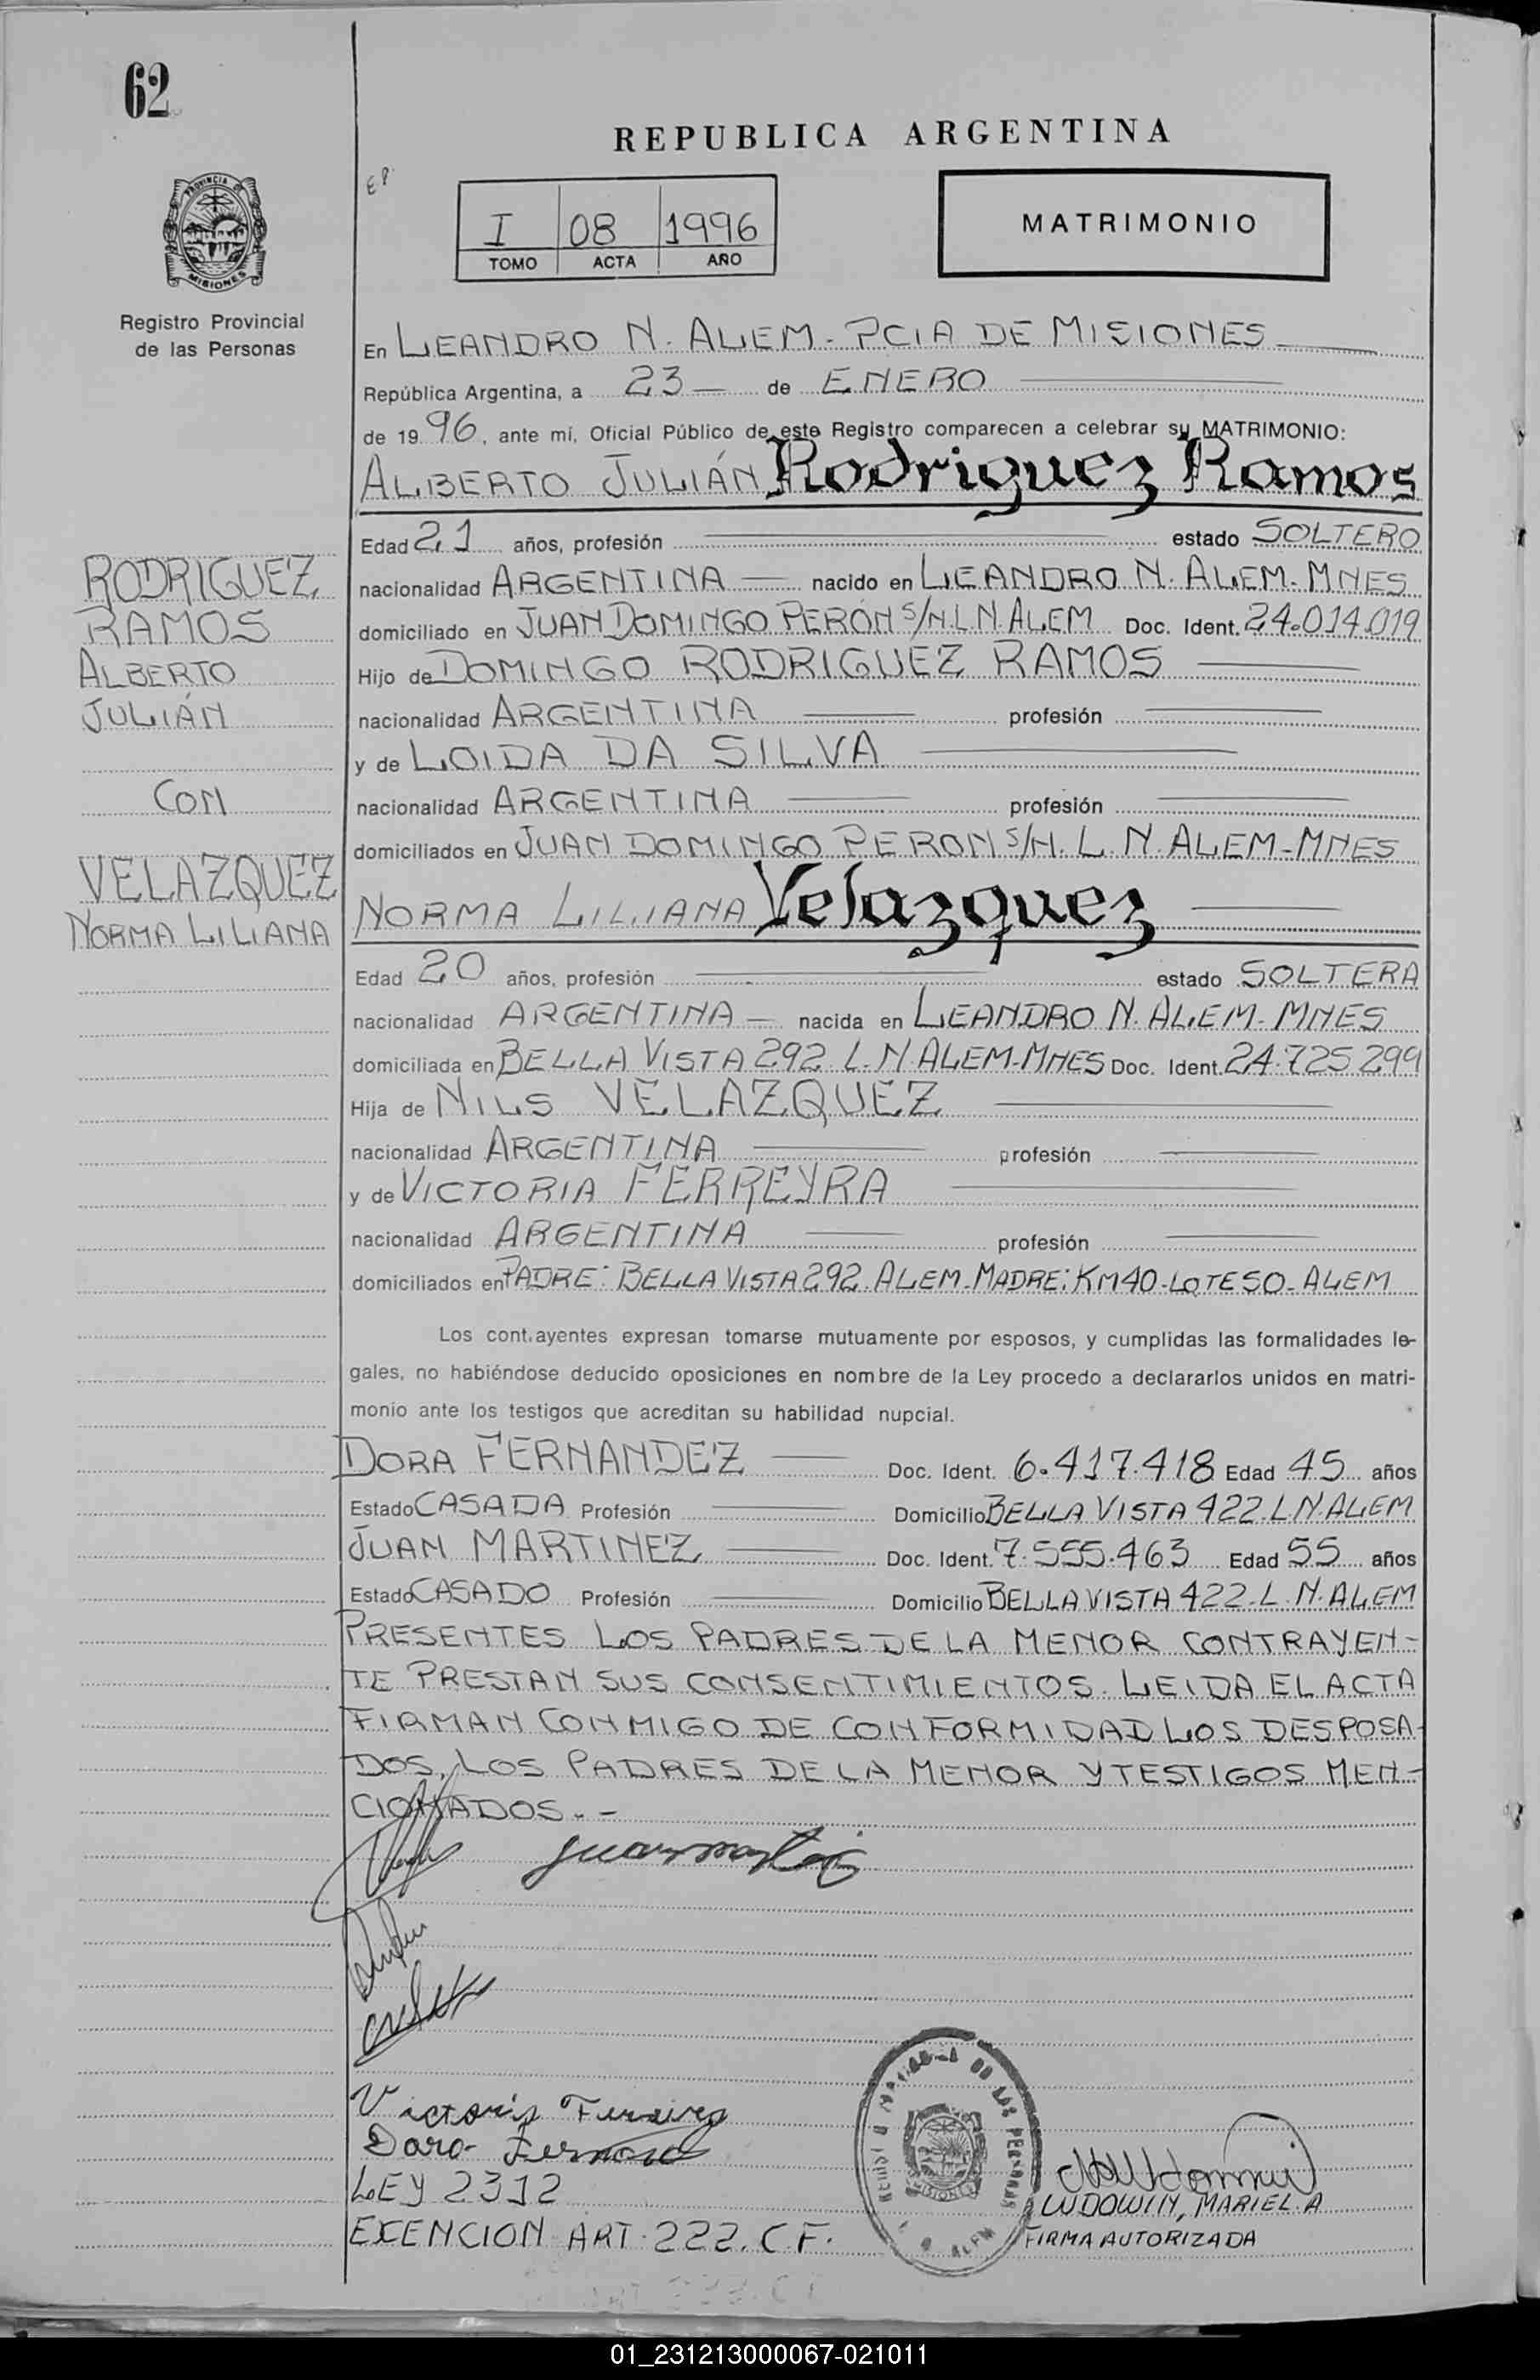 62
REPUBLICA ARGENTINA
E.P.
I 08 1996
TOMO ACTA AÑO
MATRIMONIO
PROVINCIA DE
MISIONES
Registro Provincial
de las Personas
En LEANDRO N. ALEM - PCIA DE MISIONES
República Argentina, a 23 de ENERO
de 1996, ante mí, Oficial Público de este Registro comparecen a celebrar su MATRIMONIO:
ALBERTO JULIÁN Rodriguez Ramos
Edad 21 años, profesión estado SOLTERO
RODRIGUEZ
RAMOS
ALBERTO
JULIÁN
CON
VELAZQUEZ
NORMA LILIANA
nacionalidad ARGENTINA nacido en LEANDRO N. ALEM - MNES
domiciliado en JUAN DOMINGO PERÓN S/N. L.N. ALEM Doc. Ident. 24.014.019
Hijo de DOMINGO RODRIGUEZ RAMOS
nacionalidad ARGENTINA profesión
y de LOIDA DA SILVA
nacionalidad ARGENTINA profesión
domiciliados en JUAN DOMINGO PERON S/N. L. N. ALEM - MNES
NORMA LILIANA Velazquez
Edad 20 años, profesión estado SOLTERA
nacionalidad ARGENTINA nacida en LEANDRO N. ALEM - MNES
domiciliada en BELLA VISTA 292 L.N. ALEM - MNES Doc. Ident. 24.725.299
Hija de NILS VELAZQUEZ
nacionalidad ARGENTINA profesión
y de VICTORIA FERREYRA
nacionalidad ARGENTINA profesión
domiciliados en PADRE: BELLA VISTA 292. ALEM - MADRE: KM40 - LOTE 50 - ALEM
Los contrayentes expresan tomarse mutuamente por esposos, y cumplidas las formalidades le-
gales, no habiéndose deducido oposiciones en nombre de la Ley procedo a declararlos unidos en matri-
monio ante los testigos que acreditan su habilidad nupcial.
DORA FERNANDEZ Doc. Ident. 6.417.418 Edad 45 años
Estado CASADA Profesión Domicilio BELLA VISTA 422. L.N. ALEM
JUAN MARTINEZ Doc. Ident. 7.555.463 Edad 55 años
Estado CASADO Profesión Domicilio BELLA VISTA 422 - L.N. ALEM
PRESENTES LOS PADRES DE LA MENOR CONTRAYEN-
TE PRESTAN SUS CONSENTIMIENTOS. LEIDA EL ACTA
FIRMAN CONMIGO DE CONFORMIDAD LOS DESPOSA-
DOS, LOS PADRES DE LA MENOR Y TESTIGOS MEN-
CIONADOS. -
Victoria Ferreira
Dora
LEY 2312
EXENCION ART. 222. C.F.
DE LAS PERSONAS
MISIONES
ALEM
LUDOWIN, MARIEL A
FIRMA AUTORIZADA
01_231213000067-021011